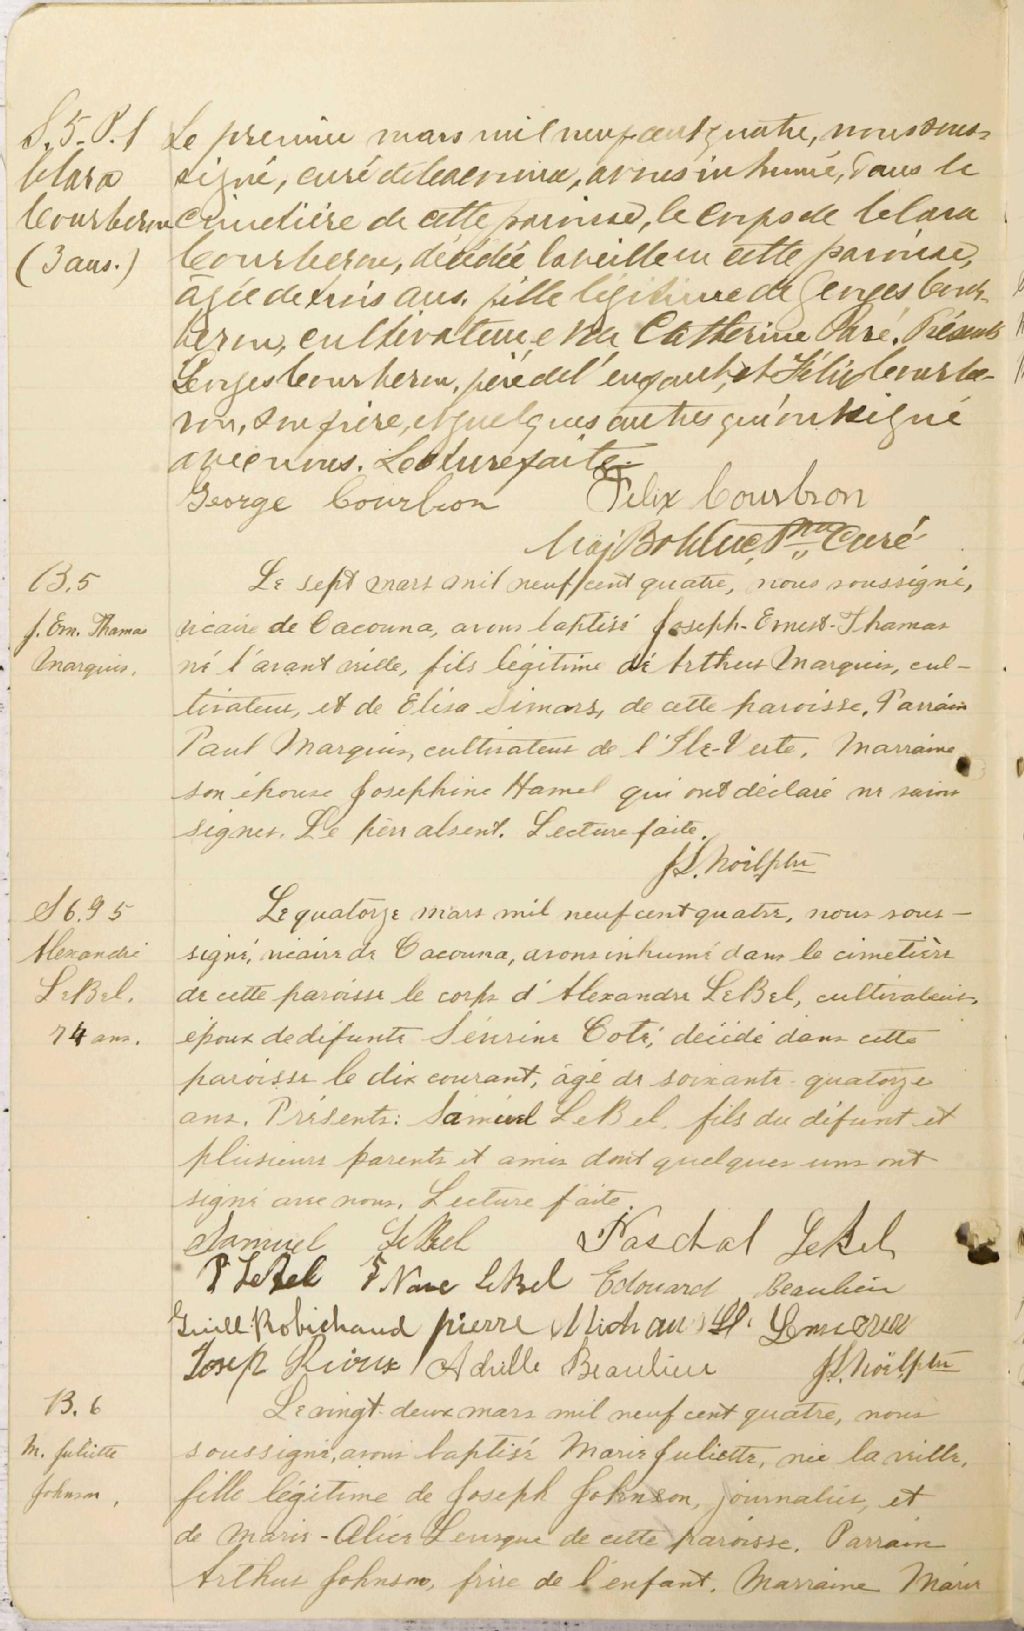 S. 5. P. 1
Clara
Courberon
(3 ans.)
Le premier mars mil neuf cent quatre, nous sous-
signé, curé de Cacouna, avons inhumé, dans le
cimetière de cette paroisse, le corps de Clara
Courberon, décédée la veille en cette paroisse,
âgée de trois ans, fille légitime de Georges Cour-
beron, cultivateur et de Catherine Paré. Présents
Georges Courberon, père de l'enfant, et Félix Courbe-
ron, son frère, et quelques autres qui ont signé
avec nous. Lecture faite.
George Courbron Felix Courbron
Ptre Curé
B. 5
J. Ern. Thomas
Marquis.
Le sept mars mil neuf cent quatre, nous soussigné,
vicaire de Cacouna, avons baptisé Joseph-Ernest-Thomas
né l'avant veille, fils légitime de Arthur Marquis, cul-
tivateur, et de Elisa Simard, de cette paroisse. Parrain
Paul Marquis, cultivateur de l'Ile-Verte. Marraine
son épouse Josephine Hamel qui ont déclaré ne savoir
signer. Le père absent. Lecture faite.
J. L. Noël ptre
S 6. 95
Alexandre
LeBel.
74 ans.
Le quatorze mars mil neuf cent quatre, nous sous-
signé, vicaire de Cacouna, avons inhumé dans le cimetière
de cette paroisse le corps d'Alexandre LeBel, cultivateur,
époux de défunte Séverine Coté, décédé dans cette
paroisse le dix courant, âgé de soixante-quatorze
ans. Présents: Samuel LeBel, fils du défunt et
plusieurs parents et amis dont quelques uns ont
signé avec nous. Lecture faite.
Samuel LeBel Paschal LeBel
P LeBel Narc LeBel Edouard Beaulieu
Guill Robichaud pierre Michaud
Joseph Rioux Achille Beaulieu J. L. Noël ptre
B. 6
M. Juliette
Johnson,
Le vingt-deux mars mil neuf cent quatre, nous
soussigné, avons baptisé Marie Juliette, née la veille,
fille légitime de Joseph Johnson, journalier, et
de Marie-Alice Levesque de cette paroisse. Parrain
Arthur Johnson, frère de l'enfant. Marraine Marie